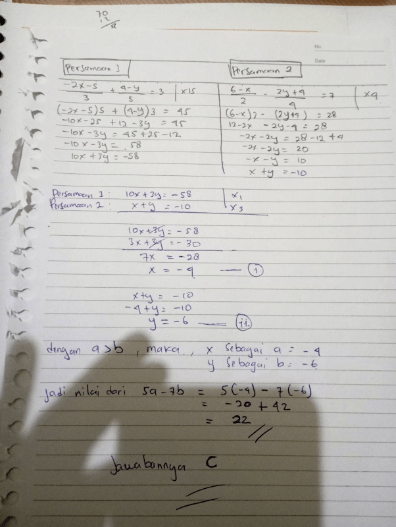 70
No
Date
Persamaan 1
Persamaan 2
(-2x-5)/3 + (4-y)/5 = 3 | x15
(-2x-5)5 + (4-y)3 = 45
-10x-25 + 12-3y = 45
-10x-3y = 45+25-12
-10x-3y = 58
10x+3y = -58
(6-x)/2 - (2y+4)/4 = 7 | x4
(6-x)2 - (2y+4) = 28
12-2x -2y-4 = 28
-2x-2y = 28-12+4
-2x-2y = 20
-x-y = 10
x+y = -10
Persamaan 1: 10x+3y = -58 | x1
Persamaan 2: x+y = -10 | x3
10x+3y = -58
3x+3y = -30
7x = -28
x = -4 — (i)
x+y = -10
-4+y = -10
y = -6 — (ii)
dengan a>b, maka, x sebagai a = -4
y sebagai b = -6
Jadi nilai dari 5a-7b = 5(-4) - 7(-6)
= -20 + 42
= 22
Jawabannya C